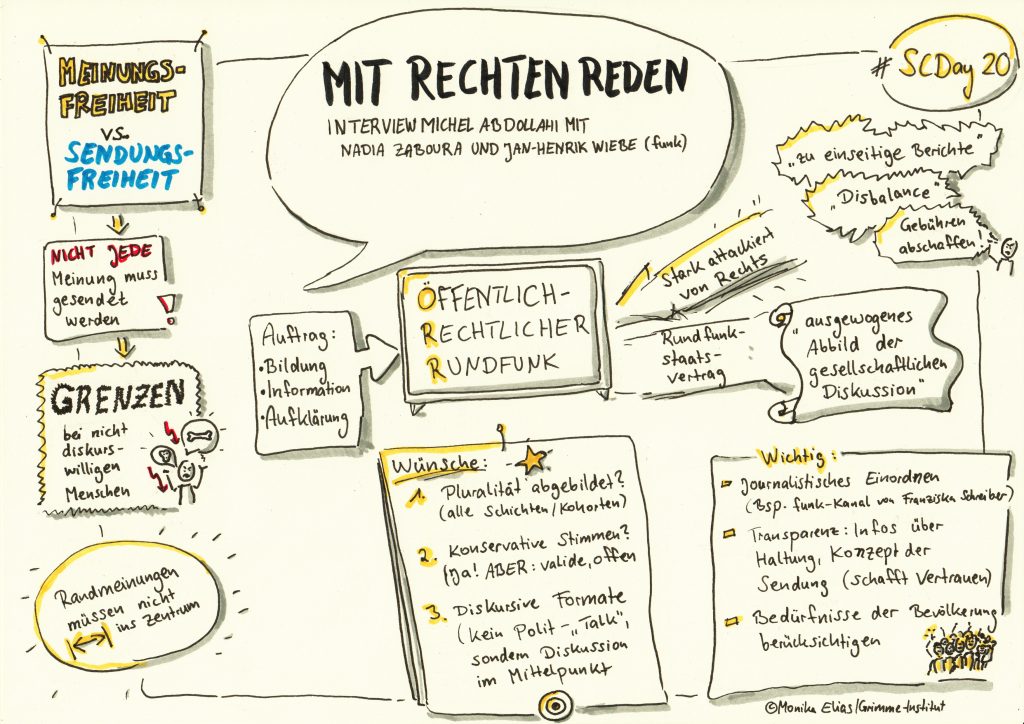 MEINUNGS-
FREIHEIT
VS.
SENDUNGS-
FREIHEIT
NICHT JEDE
Meinung muss
gesendet
werden !
GRENZEN
bei nicht
diskurs-
willigen
Menschen
Randmeinungen
müssen nicht
ins Zentrum
MIT RECHTEN REDEN
INTERVIEW MICHEL ABDOLLAHI MIT
NADIA ZABOURA UND JAN-HENRIK WIEBE (funk)
# SCDay 20
"zu einseitige Berichte"
"Disbalance"
Gebühren
abschaffen!
Auftrag:
• Bildung
• Information
• Aufklärung
ÖFFENTLICH-
RECHTLICHER
RUNDFUNK
Stark attackiert
von Rechts
Rundfunk-
staats-
vertrag
"ausgewogenes
Abbild der
gesellschaftlichen
Diskussion"
Wünsche:
1. Pluralität abgebildet?
(alle Schichten/Kohorten)
2. Konservative Stimmen?
(Ja! ABER: valide, offen
3. Diskursive Formate
(kein Polit-"Talk",
sondern Diskussion
im Mittelpunkt
Wichtig:
Journalistisches Einordnen
(Bsp. funk-Kanal von Franziska Schreiber)
Transparenz: Infos über
Haltung, Konzept der
Sendung (schafft Vertrauen)
Bedürfnisse der Bevölkerung
berücksichtigen
©Monika Elias/Grimme-Institut